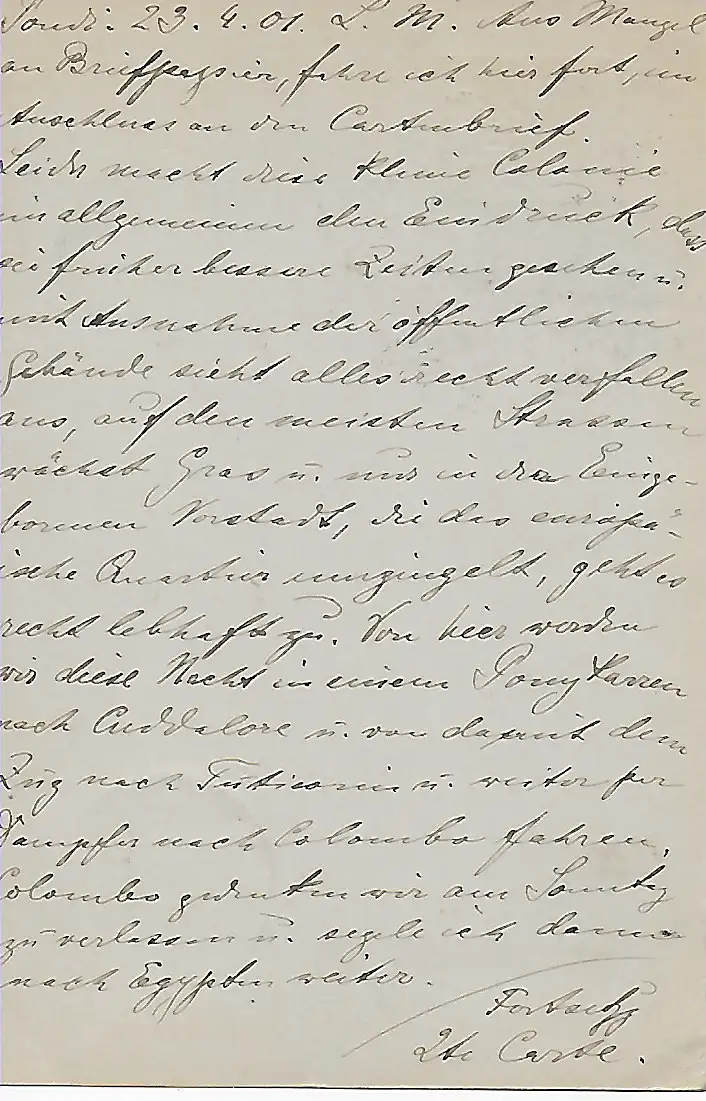 Pondi. 23. 4. 01. L. M. Aus Mangel
an Briefpapier, fahre ich hier fort, im
Anschluss an den Cartenbrief.
Leider macht diese kleine Colonie
im allgemeinen den Eindruck, dass
sie früher bessere Zeiten gesehen u.
mit Ausnahme der öffentlichen
Gebäude sieht alles recht verfallen
aus, auf den meisten Strassen
wächst Gras u. nur in der Einge-
bornen Vorstadt, die das europä-
ische Quartier umzingelt, geht es
recht lebhaft zu. Von hier werden
wir diese Nacht in einem Ponykarren
nach Cuddalore u. von da mit dem
Zug nach Tuticorin u. weiter per
Dampfer nach Colombo fahren.
Colombo gedenken wir am Sonntg
zu verlassen u. segele ich dann
nach Egypten weiter.
Fortsetzg
2te Carte.